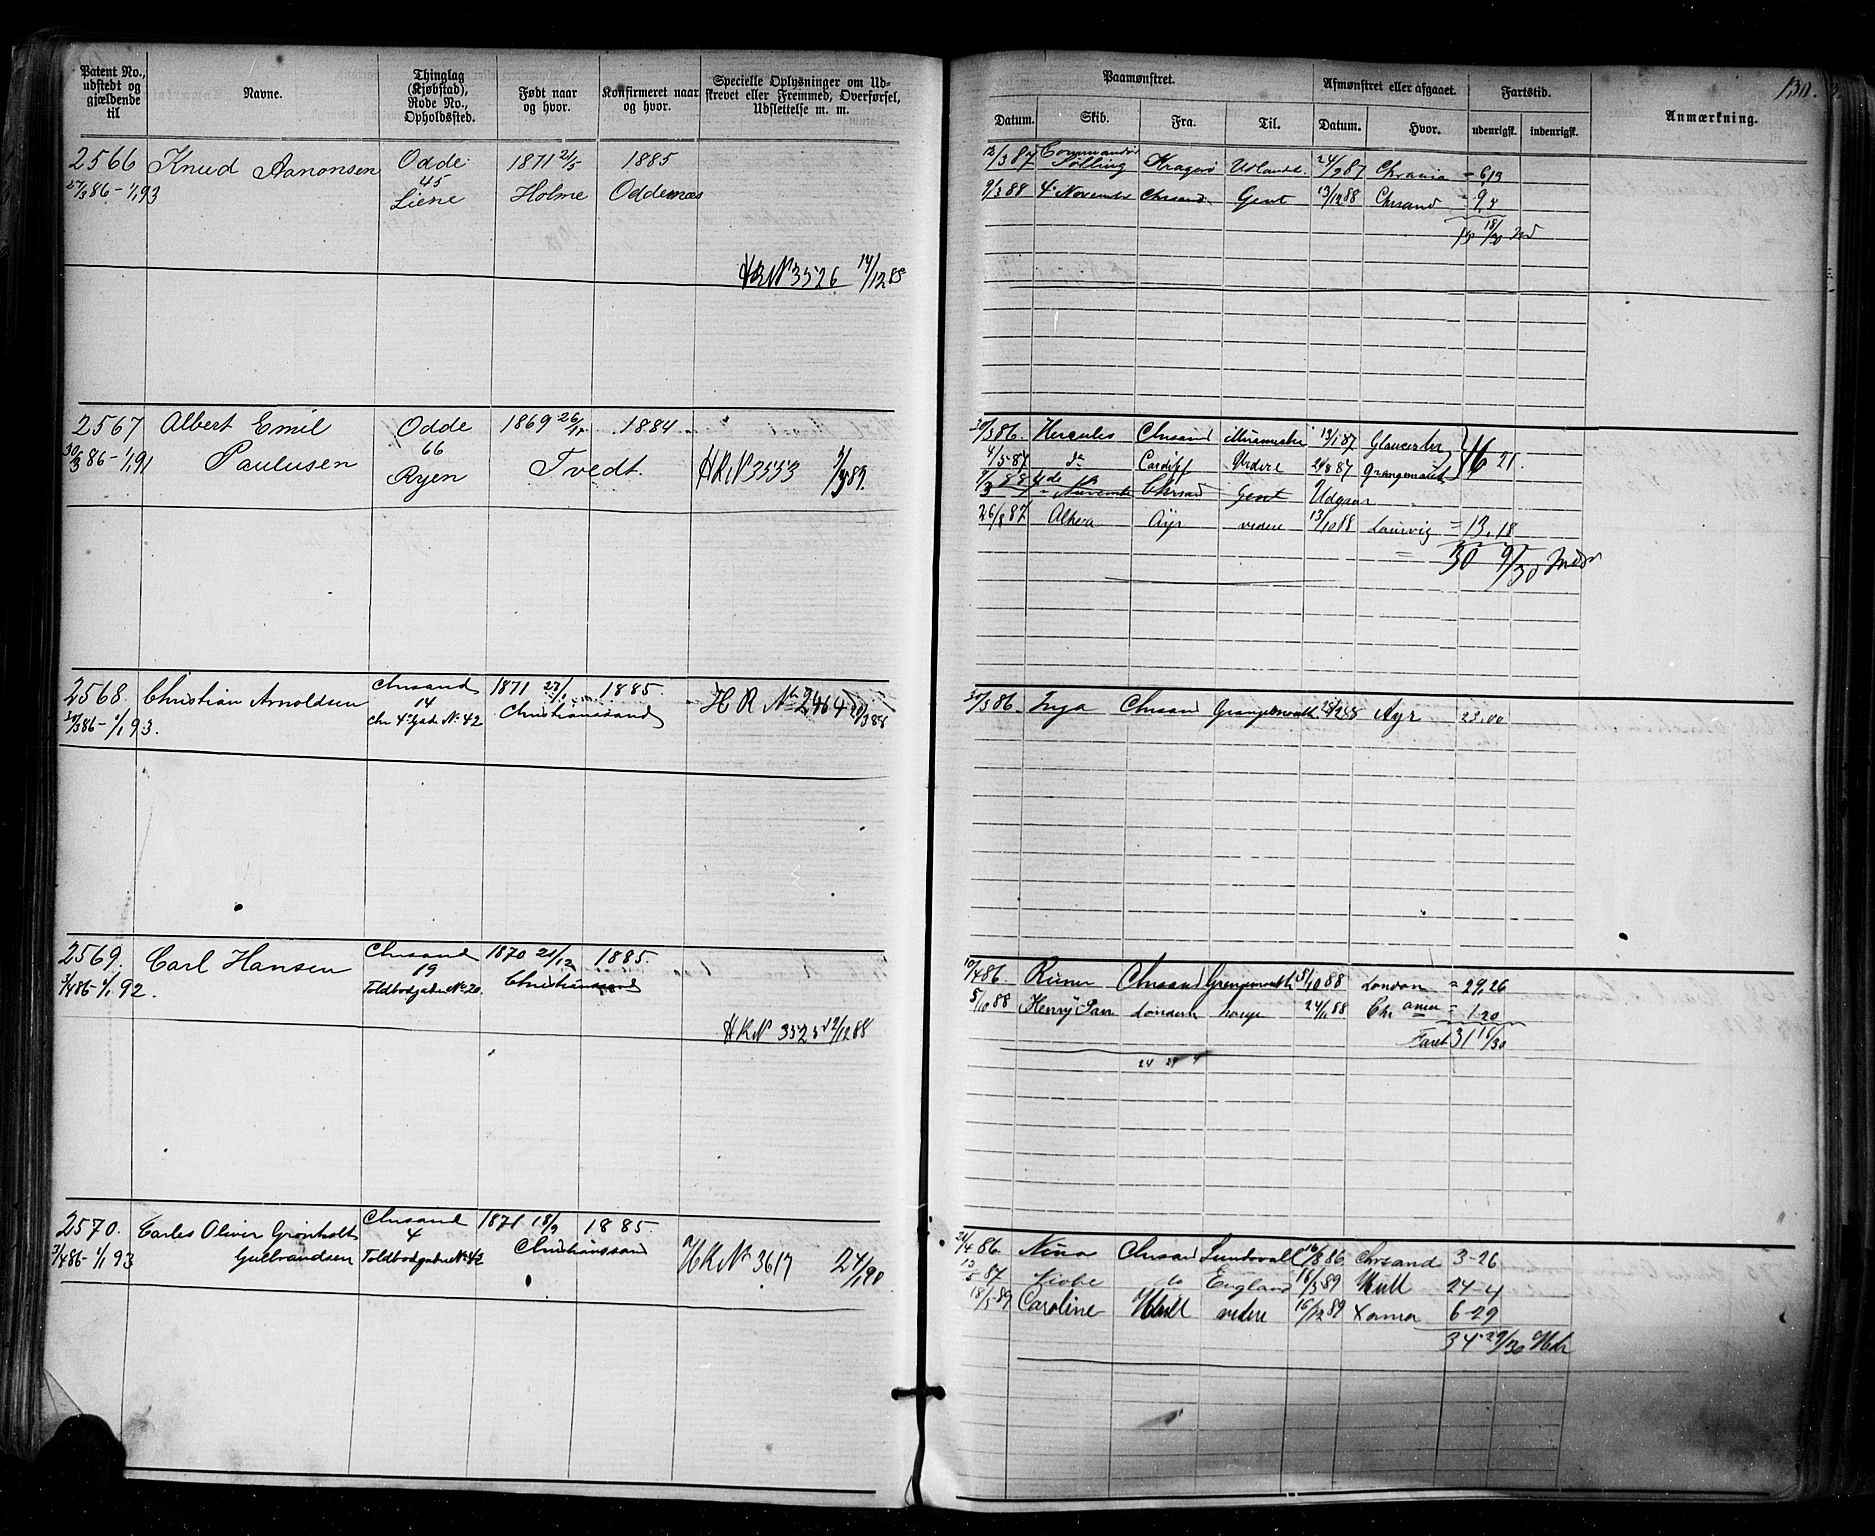 130.
Patent No., udstedt og gjældende til
Navne.
Thinglag (Kjøbstad), Rode No., Opholdssted.
Født naar og hvor.
Konfirmeret naar og hvor.
Specielle Oplysninger om Udskrevet eller Fremmed, Overførsel, Udslettelse m. m.
Paamønstret.
Afmønstret eller afgaaet.
Fartstid.
Anmærkning.
Datum. Skib. Fra. Til. Datum. Hvor. udenrigsk. indenrigsk.
2566 Knud Aanonsen Odde 1871 21/5 1885
27/3 86 - 1/1 93 45
Liene Holme Oddernæs
HRN 3526 14/12 88
12/3 87 Commandør Sølling Kragerø Udlandet 24/9 87 Chrania = 6,13
9/3 88 4de November Chrsand Gent 13/12 88 Chrsand = 9,5
18/30 Md
2567 Albert Emil Odde 1869 1884
30/3 86 - 1/1 91 Paulusen 66
Ryen Tvedt HRN 3553 89
30/3 86 Hercules Chrsand Miramichi 13/1 87 Glaucester
4/5 87 do Cardiff Videre 87 Grangemouth 16 21
4de November Chrsand Gent Udgaar
26/8 87 Ayr videre 13/10 88 Laurvig = 13,18
= 30 9/30 Mdr
2568. Christian Arnoldsen Chrsand 1871 27/1 1885.
30/3 86 - 1/1 93. 14 Christianssand
Chr 4 Gade No 42
HR No 2464 20/3 88
30/3 86. Inga Chrsand Grangemouth Ayr 23.00
2569. Carl Hansen Chrsand 1870 21/12 1885.
1/4 86 - 1/1 92. 19 Christianssand
Toldbodgaden No 20.
HRN 3525 12/12 88
10/4 86. Chrsand Grangemouth 5/10 88 London = 29,26
5/10 88 Henry London 24/11 88 Chrania = 1.20
Faret 31 16/30
24 29 9
2570. Carles Oliver Grønholt Chrsand 1871 18/9 1885.
1/4 86 - 1/1 93 Gulbrandsen 4 Christianssand
Toldbodgaden No 42
HRN 3617 24/1 90
21/4 86. Nina Chrsand Sundsvall 16/8 86 Chrsand 3-26
12/5 87 Niobe do England 16/5 89 Hull 24-4
18/5 89 Caroline Hull videre 16/12 89 6-29
34 29/30 Mdr